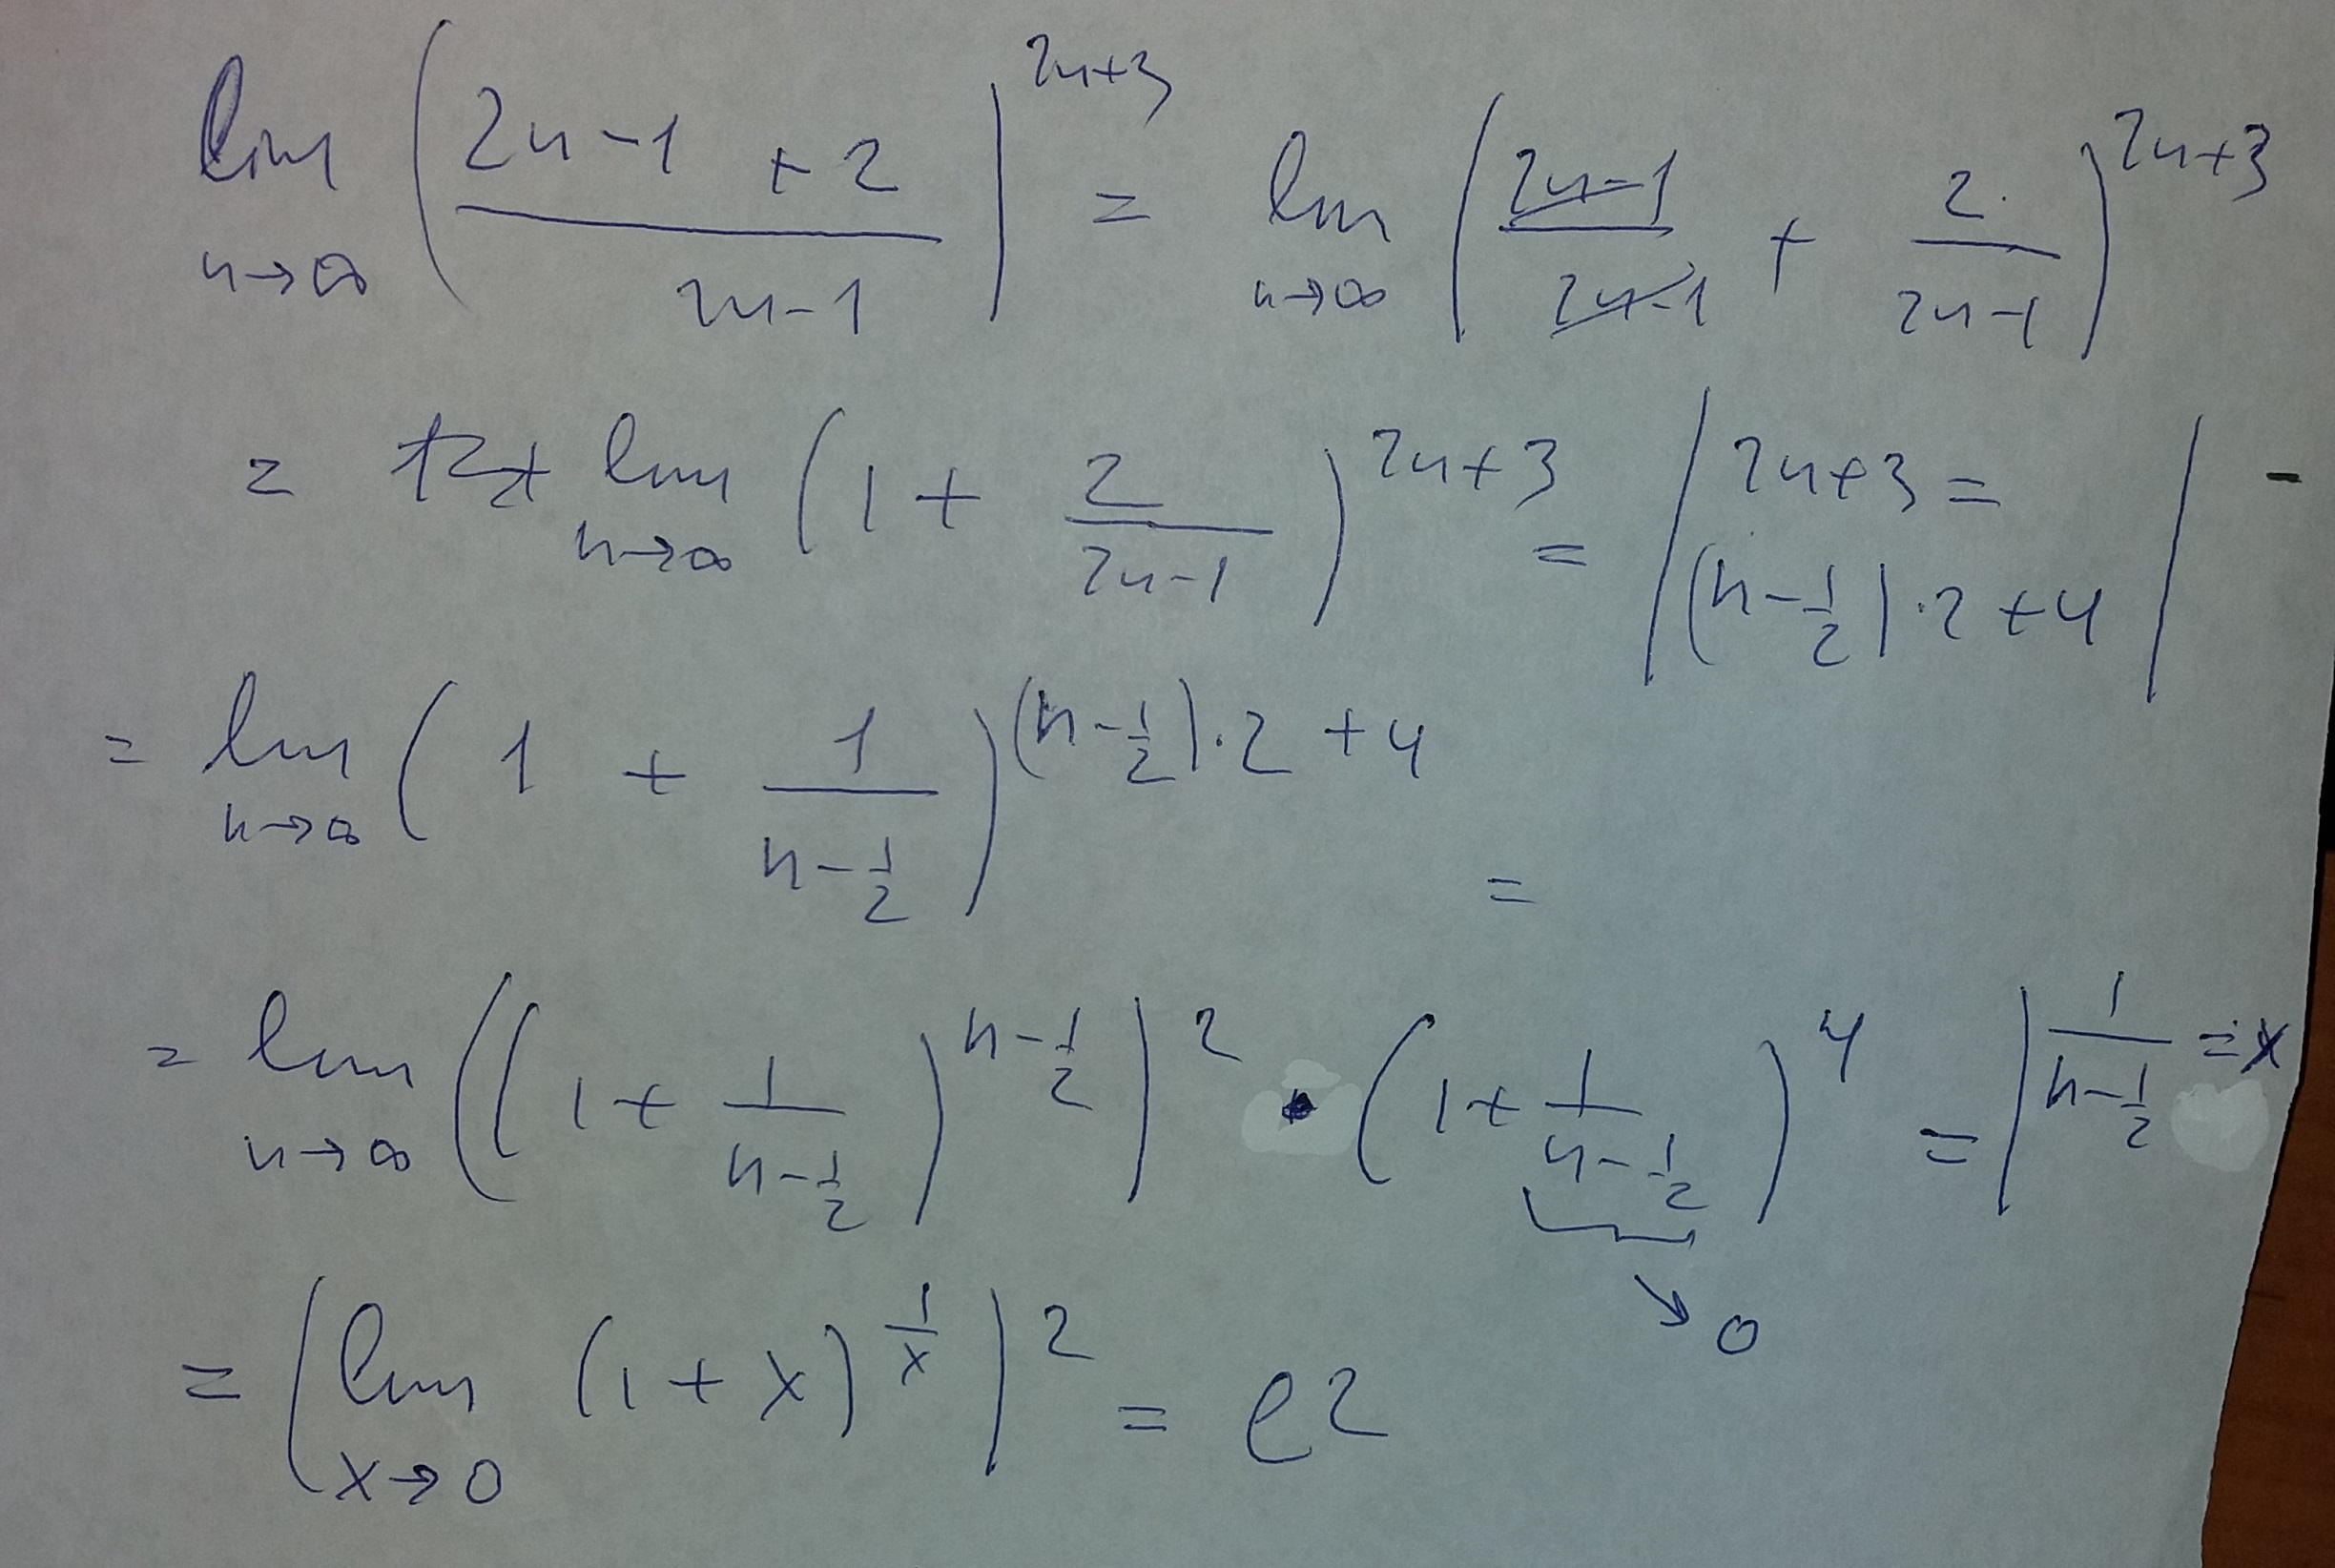 lim n→∞ ( (2n-1 +2) / (2n-1) )^(2n+3) = lim n→∞ ( (2n-1)/(2n-1) + 2/(2n-1) )^(2n+3)
= lim n→∞ ( 1 + 2/(2n-1) )^(2n+3) = | 2n+3 = (n-1/2)·2+4 | -
= lim n→∞ ( 1 + 1/(n-1/2) )^((n-1/2)·2+4) =
= lim n→∞ ( ( 1 + 1/(n-1/2) )^(n-1/2) )^2 · ( 1 + 1/(n-1/2) )^4 = | 1/(n-1/2) = x
→ 0
= ( lim x→0 (1+x)^(1/x) )^2 = e2